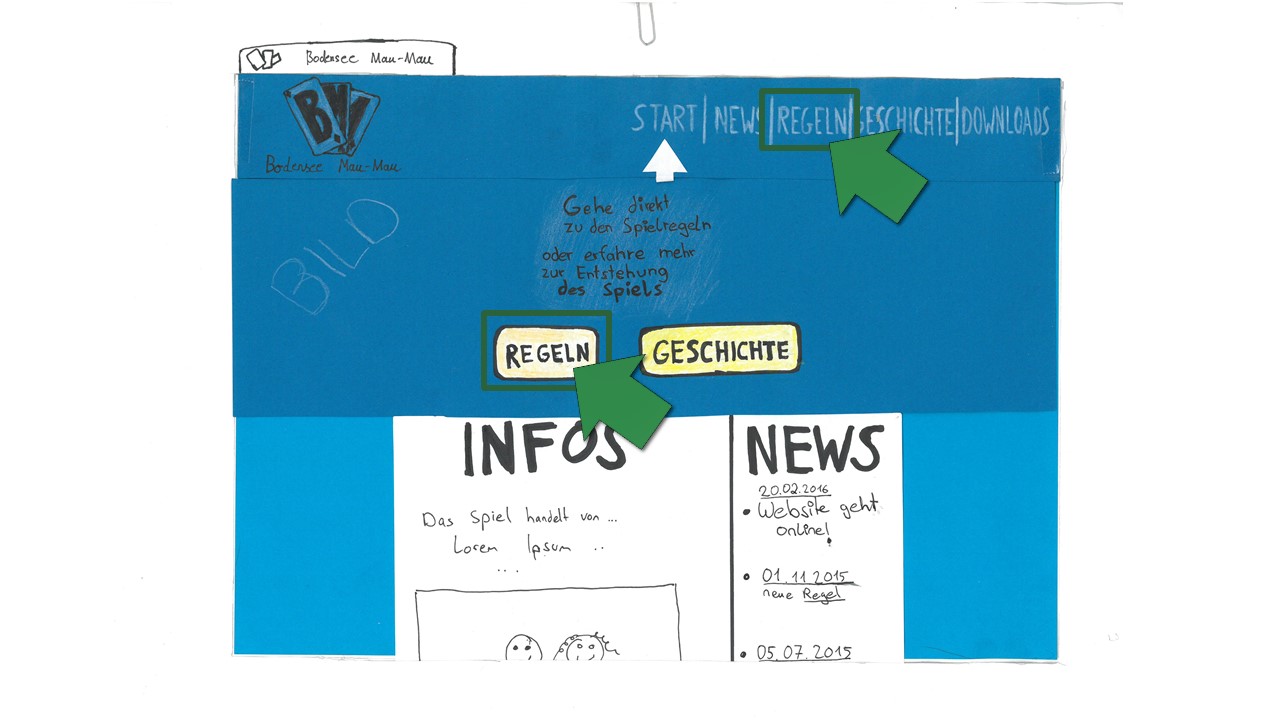 Bodensee Mau-Mau
B.M
Bodensee Mau-Mau
START | NEWS | REGELN | GESCHICHTE | DOWNLOADS
BILD
Gehe direkt
zu den Spielregeln
oder erfahre mehr
zur Entstehung
des Spiels
REGELN
GESCHICHTE
INFOS
Das Spiel handelt von ...
Lorem Ipsum ..
...
NEWS
20.02.2016
• Website geht
online!
• 01.11.2015
neue Regel
• 05.07.2015